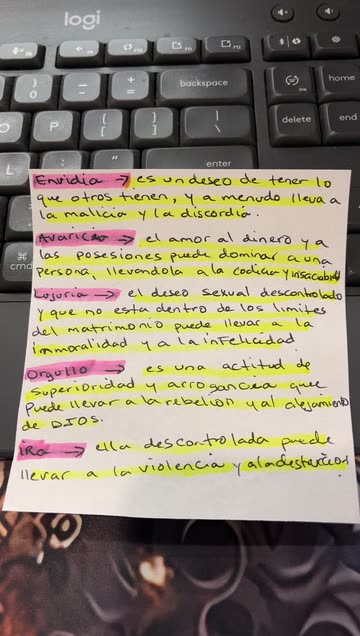 logi
backspace
home
delete
end
P
enter
cmd
Envidia → es un deseo de tener lo
que otros tienen, y a menudo lleva a
la malicia y la discordia.
Avaricia → el amor al dinero y a
las posesiones puede dominar a una
persona, llevandola a la codicia y insaciabl
Lujuria → el deseo sexual descontrolado
y que no esta dentro de los limites
del matrimonio puede llevar a la
inmoralidad y a la infelicidad.
Orgullo → es una actitud de
superioridad y arrogancia que
puede llevar a la rebelion y al alejamiento
de DIOS.
IRA → ella descontrolada puede
llevar a la violencia y a la